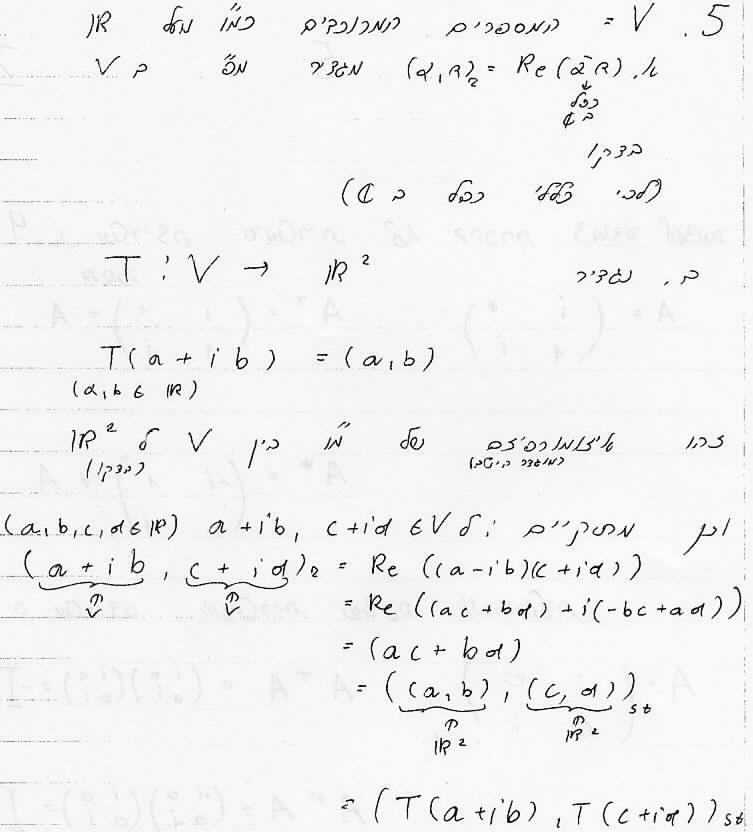 5. V = המספרים המרוכבים כמ"ו מעל ℝ
א. (α,β)₂ = Re(ᾱβ) מגדיר מ"פ ב V
↓
כפל
ב ℂ
בדקו
(לפי כללי כפל ב ℂ)
ב. נגדיר T : V → ℝ²
T(a + ib) = (a,b)
(a,b ∈ ℝ)
זהו איזומורפיזם של מ"ו בין V ל ℝ²
(מוגדר היטב) (בדקו)
וכן מתקיים: ל a+ib, c+id ∈ V (a,b,c,d ∈ ℝ)
(a+ib, c+id)₂ = Re((a-ib)(c+id))
⇑ V ⇑ V
= Re((ac+bd) + i(-bc+ad))
= (ac+bd)
= ((a,b), (c,d))st
⇑ ℝ² ⇑ ℝ²
= (T(a+ib), T(c+id))st